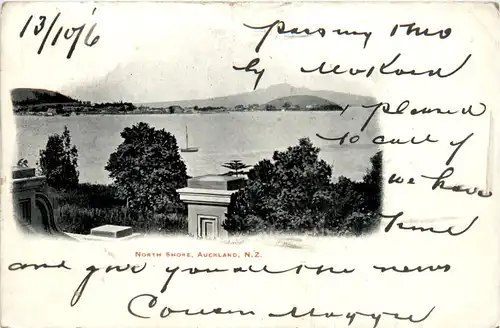 13/10/'6
by
pleased
to call if
we have
time
NORTH SHORE, AUCKLAND, N.Z.
and give you all the news
Cousin Maggie